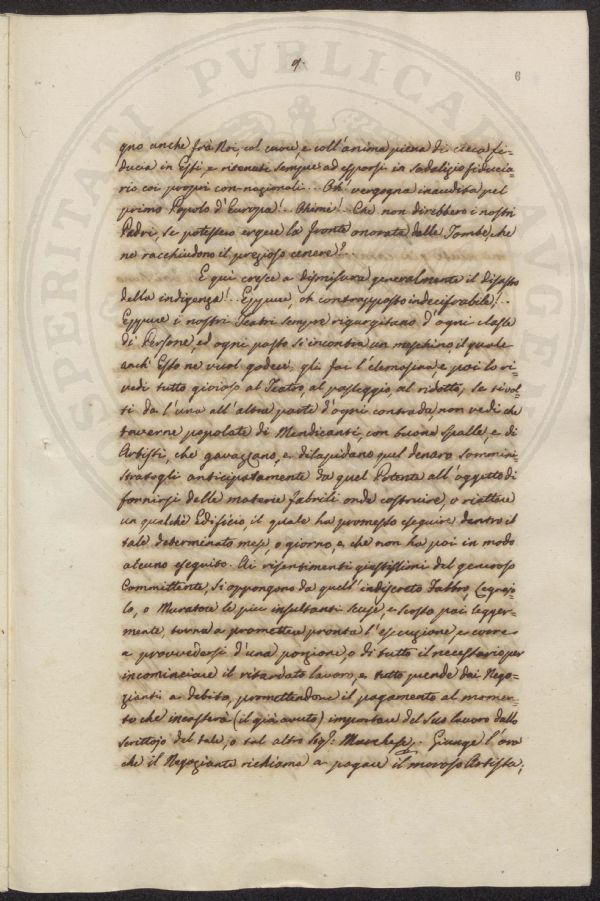 9.
6
gno anche frà Noi, col cuore, e coll'anima piena di cieca fi=
ducia in Essi, e ritenuti sempre ad esporsi in sodalizio fiducia=
rio coi proprj con-nazionali... Oh vergogna inaudita pel
primo Popolo d'Europa!.. Ohimè!.. Che non direbbero i nostri
Padri, se potessero ergere la fronte onorata dalle Tombe, che
ne racchiudono il prezioso cenere?
E qui cresce a dismisura generalmente il disasto
della indigenza!.. Eppure, oh contrapposto indecifrabile!..
Eppure i nostri Teatri sempre rigurgitano d'ogni classe
di Persone, ed ogni posto si incontra un meschino, il quale
anch'Esso ne vuol godere; gli fai l'elemosina, e poi lo ri=
vedi tutto gioioso al Teatro, al passeggio, al ridotto; se rivol=
ti da l'una all'altra parte d'ogni contrada, non vedi che
taverne popolate di Mendicanti, con buone spalle, e di
Artisti, che gavazzano, e dilapidano quel denaro sommini=
stratogli anticipatamente da quel Potente all'oggetto di
fornirsi delle materie fabrili onde costruire, o riattare
un qualche Edificio, il quale ha promesso eseguire dentro il
tale determinato mese, o giorno, e che non ha poi in modo
alcuno eseguito. Ai risentimenti giustissimi del generoso
Committente, si oppongono da quell'indiscreto Fabbro, Legnajo=
lo, o Muratore le più insultanti scuse, e scosso poi legger=
mente, torna a promettere pronta l'esecuzione, e corre
a provvedersi d'una porzione, o di tutto il necessario per
incominciare il ritardato lavoro, e tutto prende dai Nego=
zianti a debito, promettendone il pagamento al momen=
to che incasserà (il già avuto) importare del suo lavoro dallo
scrittojo del tale, o tal altro Sig.r Marchese. Giunge l'ora
che il Negoziante richiama a pagare il moroso Artista;
OSPERITATI PVBLICAE AVGEN